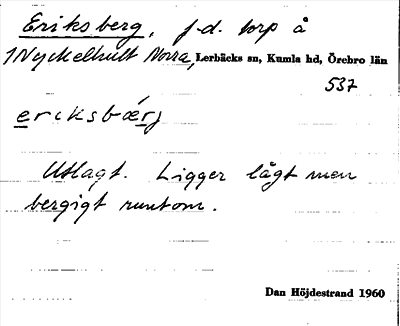 Eriksberg, f.d. torp å
1 Nyckelhult Norra, Lerbäcks sn, Kumla hd, Örebro län
537
ericksbærj
Utlagt. Ligger lågt men
bergigt runtom.
Dan Höjdestrand 1960